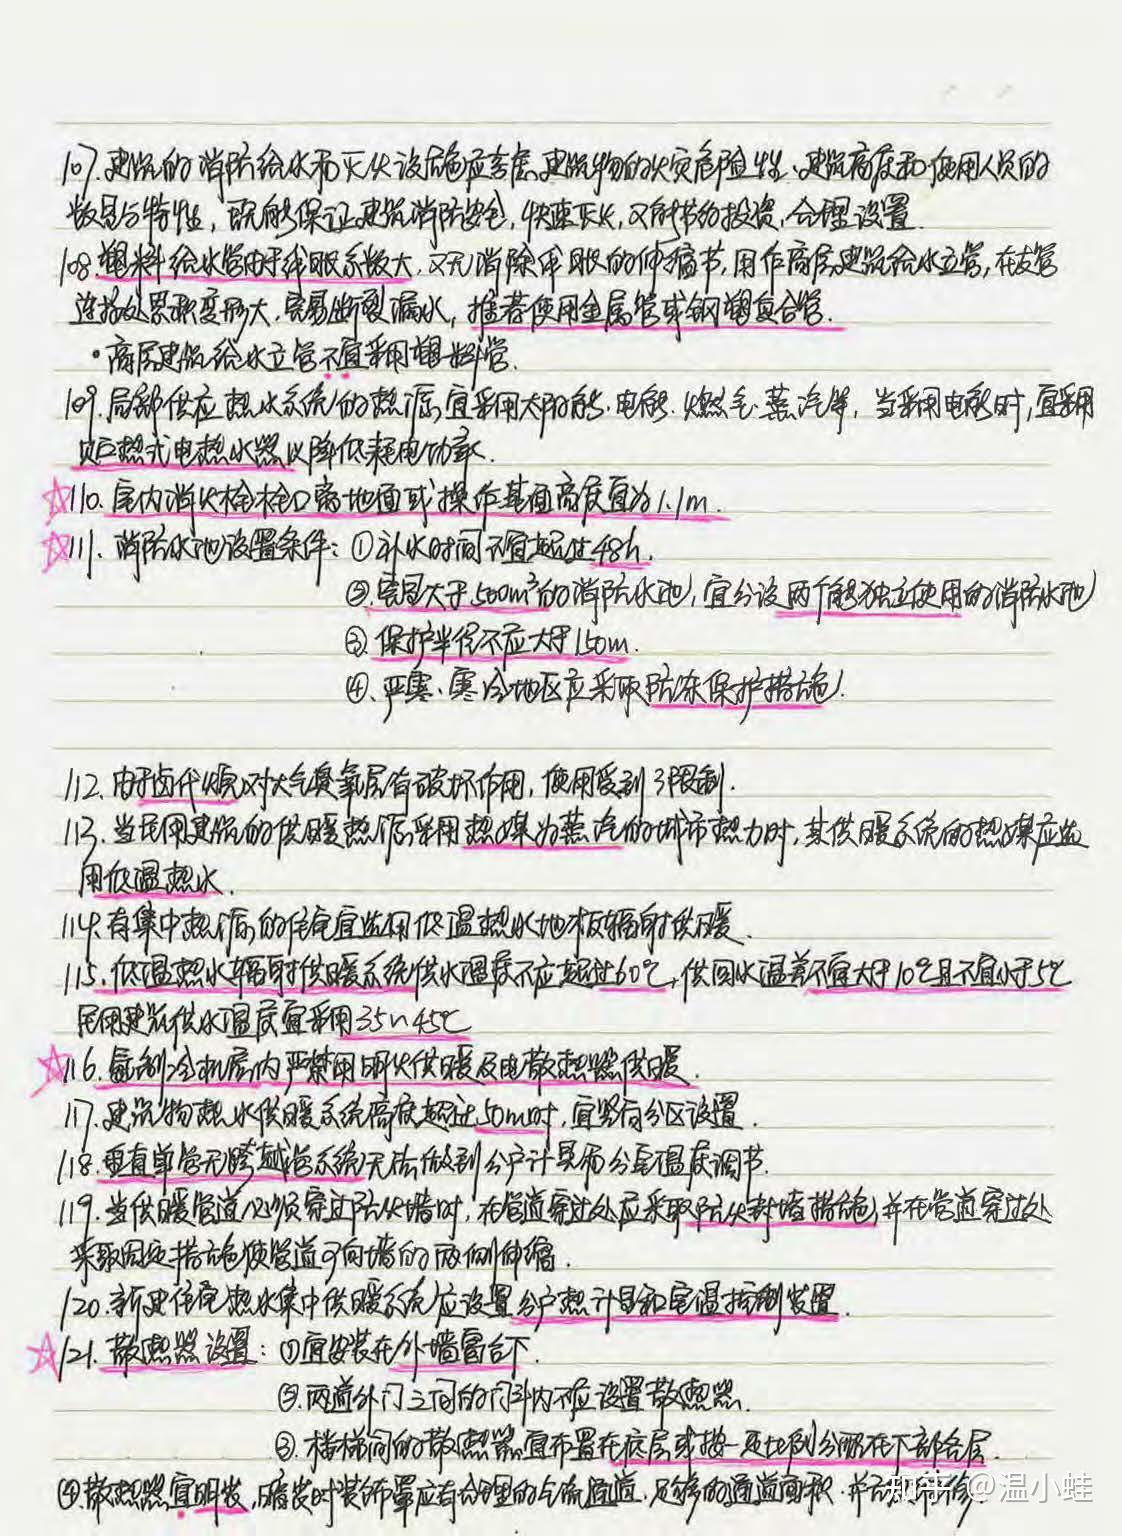 107. 建筑的消防给水和灭火设施应考虑建筑物的火灾危险性、建筑高度和使用人员的
数量与特性，既能保证建筑消防安全，快速灭火，又能节约投资，合理设置.
108. 塑料给水管由于线膨胀系数大，又无消除线膨胀的伸缩节，用作高层建筑给水立管，在支管
连接处累积变形大，容易断裂漏水，推荐使用金属管或钢塑复合管.
·高层建筑给水立管不宜采用塑料管.
109. 局部供应热水系统的热源宜采用太阳能、电能、燃气、蒸汽等，当采用电能时，宜采用
贮热式电热水器以降低耗电功率.
☆110. 室内消火栓栓口离地面或操作基面高度宜为1.1m.
☆111. 消防水池设置条件：①补水时间不宜超过48h.
②.容量大于500m³的消防水池，宜分设两个能独立使用的消防水池
③.保护半径不应大于150m.
④、严寒、寒冷地区应采取防冻保护措施.
112. 由于卤代烷对大气臭氧层有破坏作用，使用受到了限制.
113. 当民用建筑的供暖热源采用热媒为蒸汽的城市热力时，其供暖系统的热媒应选
用低温热水.
114. 有集中热源的住宅宜选用低温热水地板辐射供暖.
115. 低温热水辐射供暖系统供水温度不应超过60℃，供回水温差不宜大于10℃且不宜小于5℃
民用建筑供水温度宜采用35~45℃
☆116. 氨制冷机房内严禁用明火供暖及电散热器供暖.
117. 建筑物热水供暖系统高度超过50m时，宜竖向分区设置.
118. 垂直单管无跨越管系统无法做到分户计量和分室温度调节.
119. 当供暖管道必须穿过防火墙时，在管道穿过处应采取防火封堵措施，并在管道穿过处
采取固定措施使管道可向墙的两侧伸缩.
120. 新建住宅热水集中供暖系统，应设置分户热计量和室温控制装置.
☆121. 散热器设置：①宜安装在外墙窗台下.
②.两道外门之间的门斗内不应设置散热器.
③.楼梯间的散热器宜布置在底层或按一定比例分配在下部各层.
④.散热器宜明装，暗装时装饰罩应有合理的气流通道、足够的通道面积，并方便维修.
知乎 @温小蛙